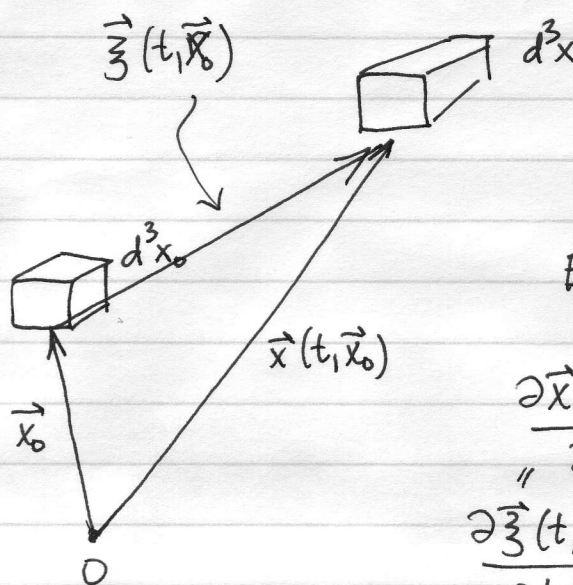 ξ⃗(t, x⃗₀)
d³x
d³x₀
x⃗(t, x⃗₀)
∂x⃗
x⃗₀
"
∂ξ⃗(t,
O